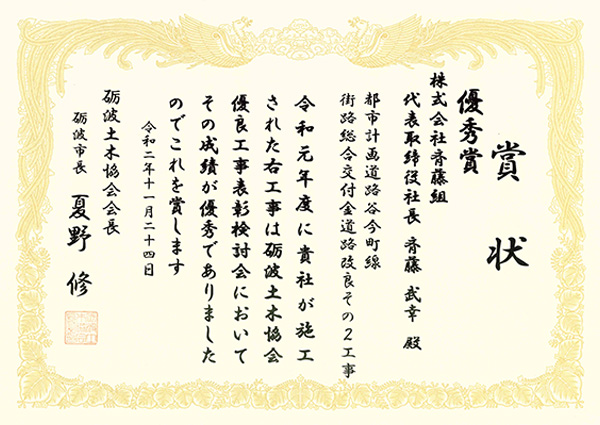 賞状
優秀賞
株式会社斉藤組
代表取締役社長 斉藤 武幸 殿
都市計画道路谷今町線
街路総合交付金道路改良その2工事
令和元年度に貴社が施工
された右工事は砺波土木協会
優良工事表彰検討会において
その成績が優秀でありました
のでこれを賞します
令和二年十一月二十四日
砺波土木協会会長
砺波市長 夏野 修